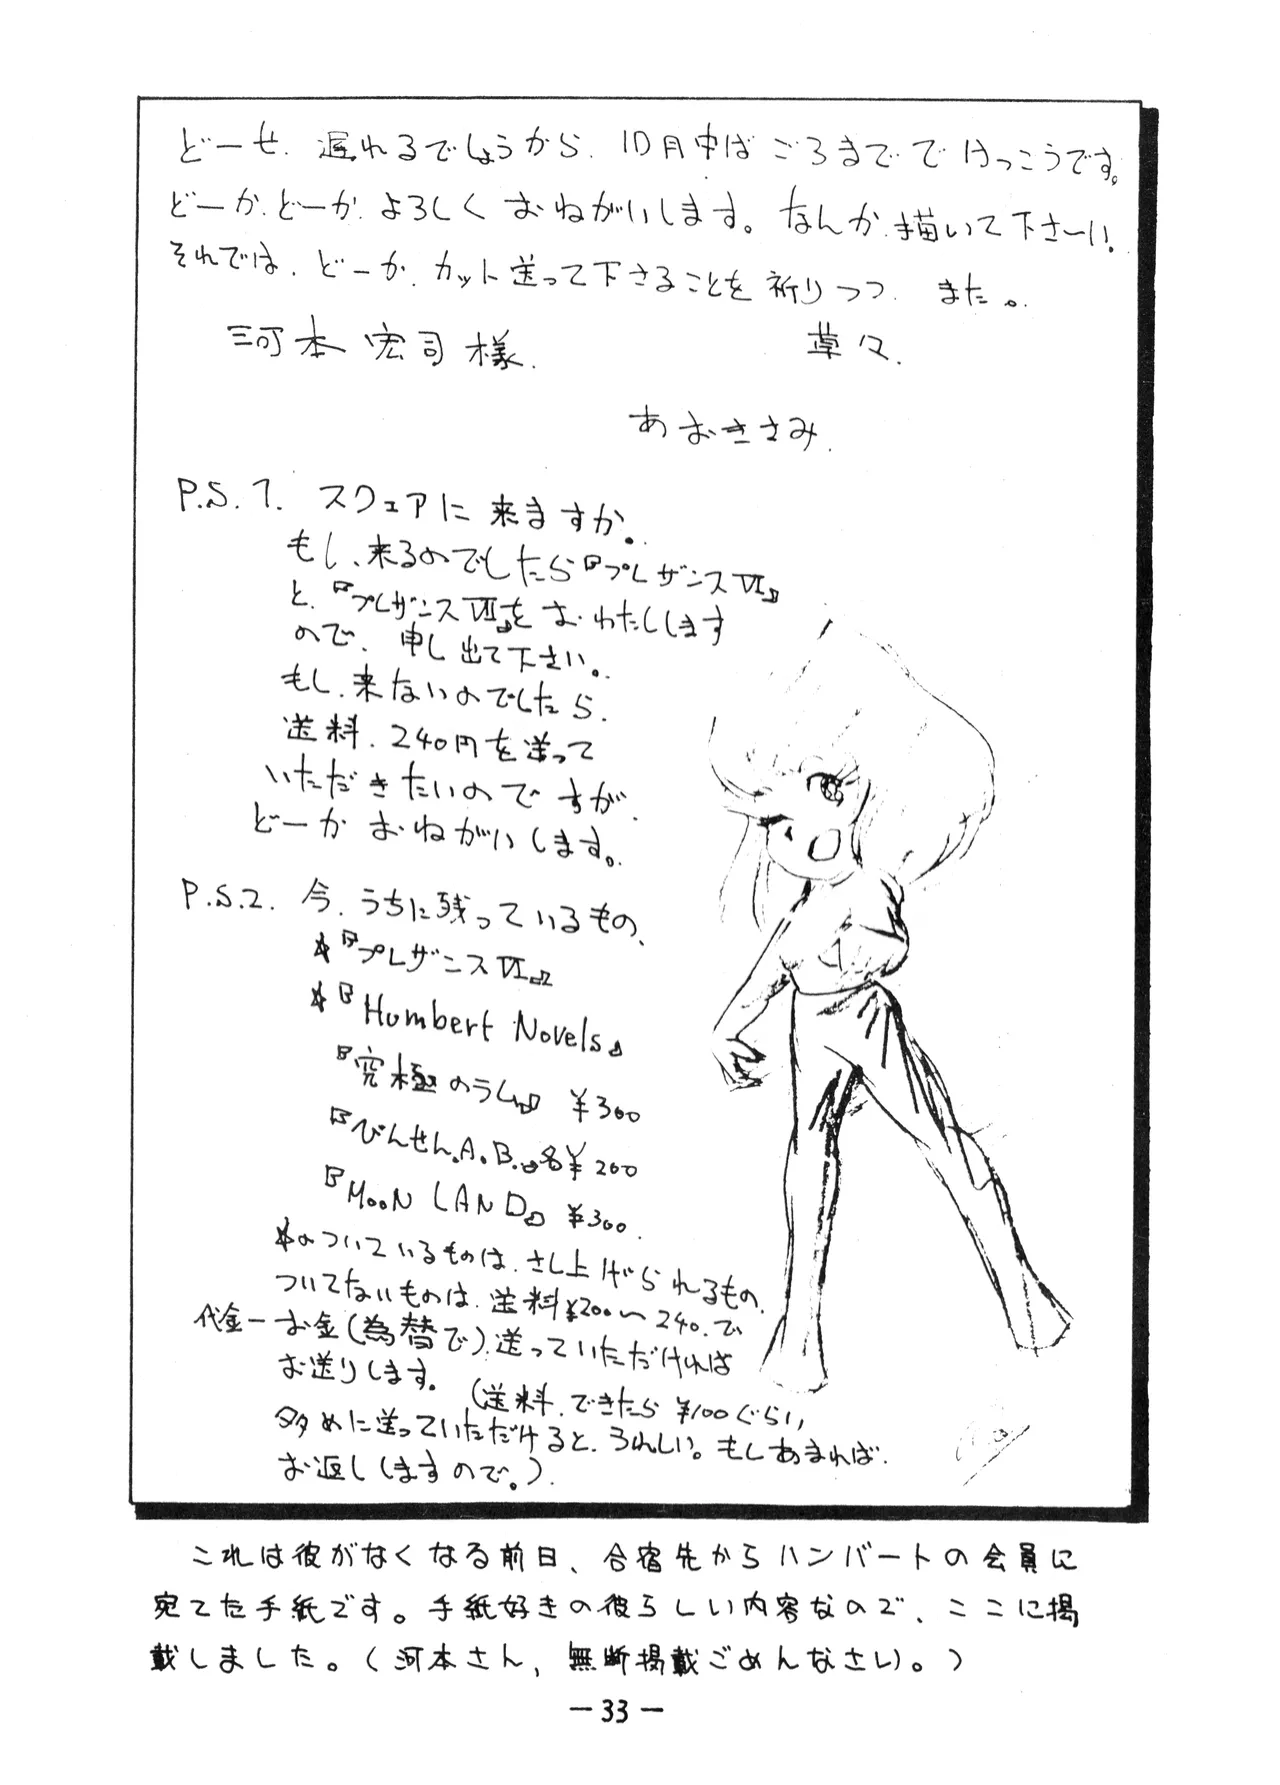 どーせ、遅れるでしょうから、10月中ばごろまででけっこうです。
どーか、どーか、よろしくおねがいします。なんか描いて下さ〜い。
それでは、どーか、カット送って下さることを祈りつつ、また。
河本宏司様.
草々.
あおききみ.
P.S.1. スクェアに来ますか。
もし、来るのでしたら『プレザンスⅥ』
と、『プレザンスⅦ』をおわたしします
ので、申し出て下さい。
もし、来ないのでしたら、
送料、240円を送って
いただきたいのですが、
どーかおねがいします。
P.S.2. 今、うちに残っているもの、
☆『プレザンスⅥ』
☆『Humbert Novels』
『究極のラム』 ¥300
『びんせん.A.B.』各¥200
『MOON LAND』 ¥300.
☆のついているものは、さし上げられるもの、
ついてないものは、送料¥200〜240.で
代金ーお金(為替で)送っていただければ
お送りします。(送料、できたら¥100ぐらい
多めに送っていただけると、うれしい。もしあまれば、
お返ししますので。)
これは彼がなくなる前日、合宿先からハンバートの会員に
宛てた手紙です。手紙好きの彼らしい内容なので、ここに掲
載しました。(河本さん、無断掲載ごめんなさい。)
— 33 —